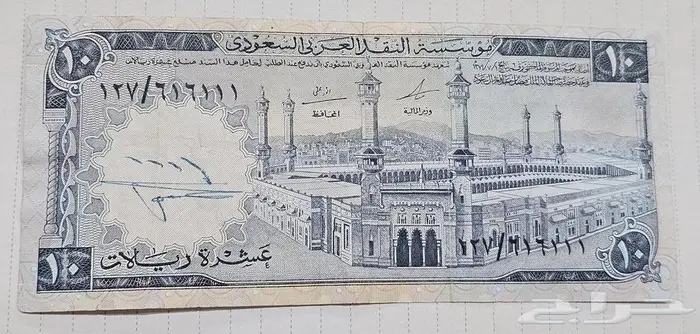 مؤسسة النقد العربي السعودي
١٠
١٠
تتعهد مؤسسة النقد العربي السعودي بأن تدفع عند الطلب لحامل هذا السند مبلغ عشرة ريالات
١٢٧/٦١٦١١١
وزير المالية
المحافظ
١٢٧/٦١٦١١١
عشرة ريالات
١٠
١٠
حراج